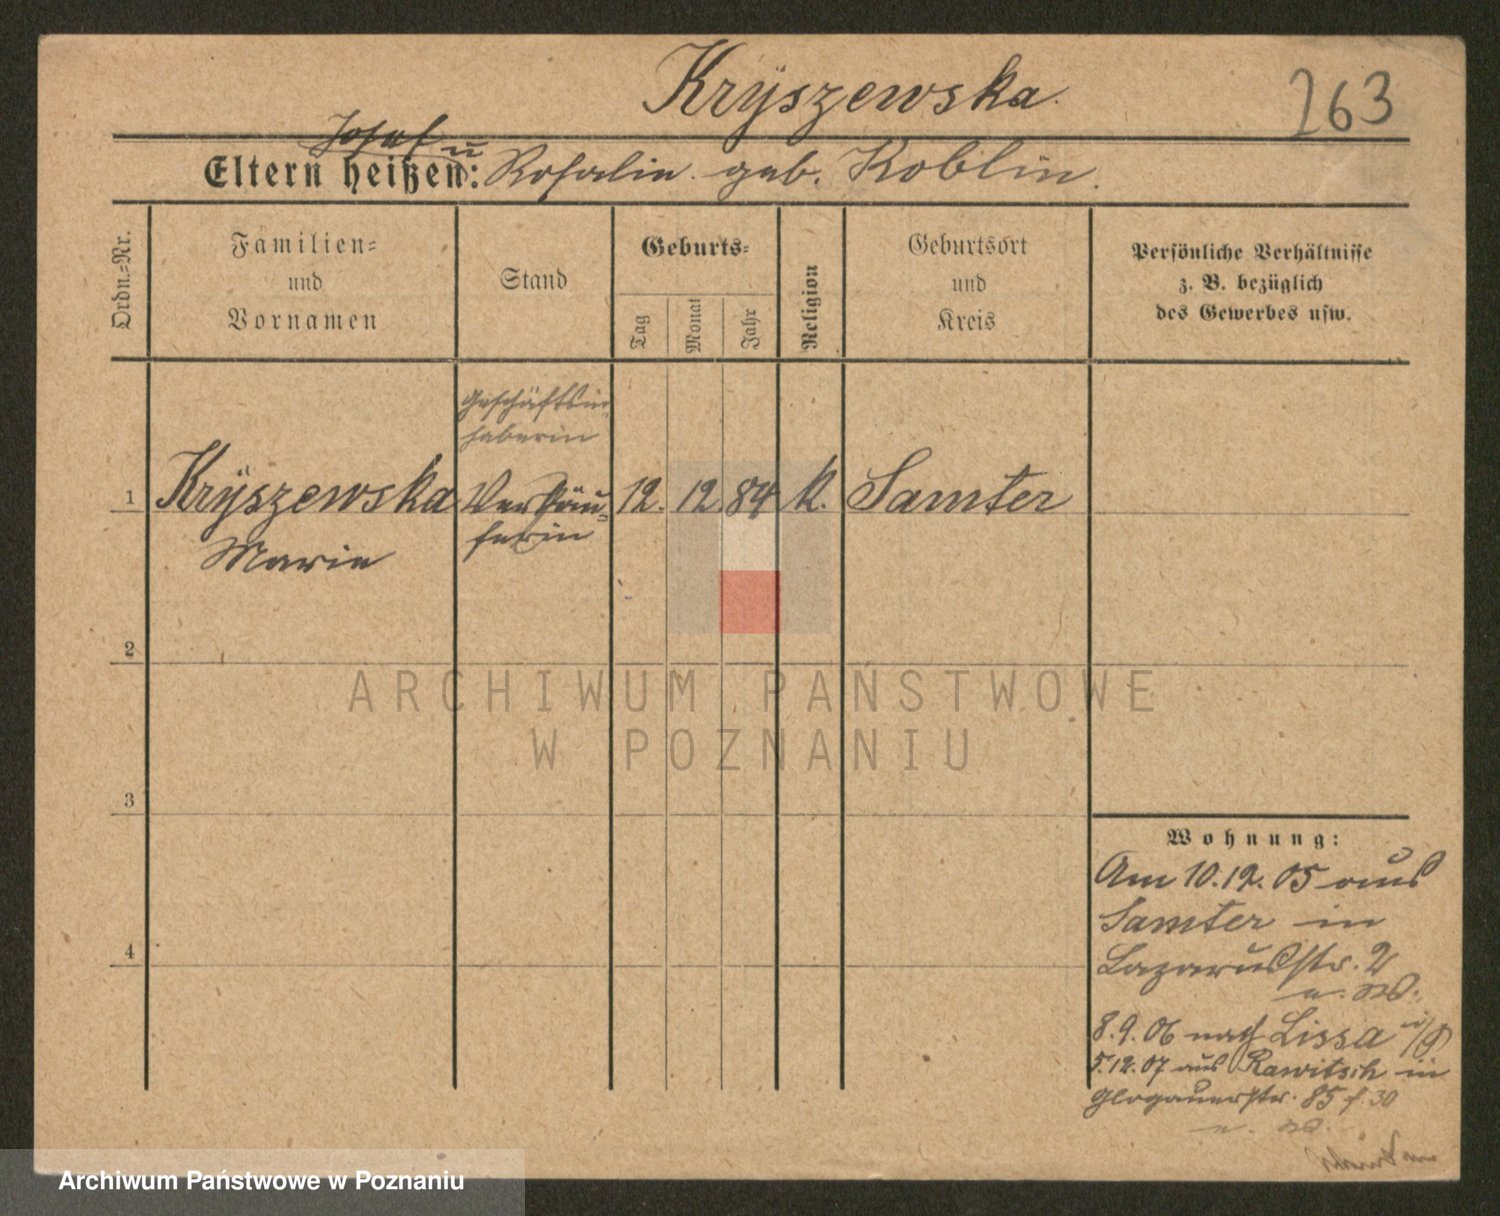 Kryszewska.
263
Josef u
Eltern heißen: Rosalie geb. Koblin.
Ordn.-Nr.
Familien-
und
Vornamen
Stand
Geburts-
Tag
Monat
Jahr
Religion
Geburtsort
und
Kreis
Persönliche Verhältnisse
z. B. bezüglich
des Gewerbes usw.
Geschäftsin-
haberin
1 Kryszewska Verkäu- 12. 12. 84 k. Samter
Marie ferin
2
3
4
ARCHIWUM PAŃSTWOWE
W POZNANIU
Wohnung:
Am 10.12.05 aus
Samter in
Lazarusstr. 2
8.9.06 nach Lissa i/P
5.12.07 aus Rawitsch in
Glogauerstr. 85 f. 30
Archiwum Państwowe w Poznaniu